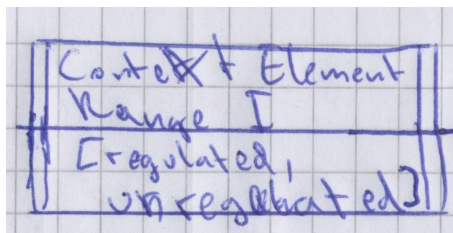 Context Element
Range I
[regulated,
unregulated]